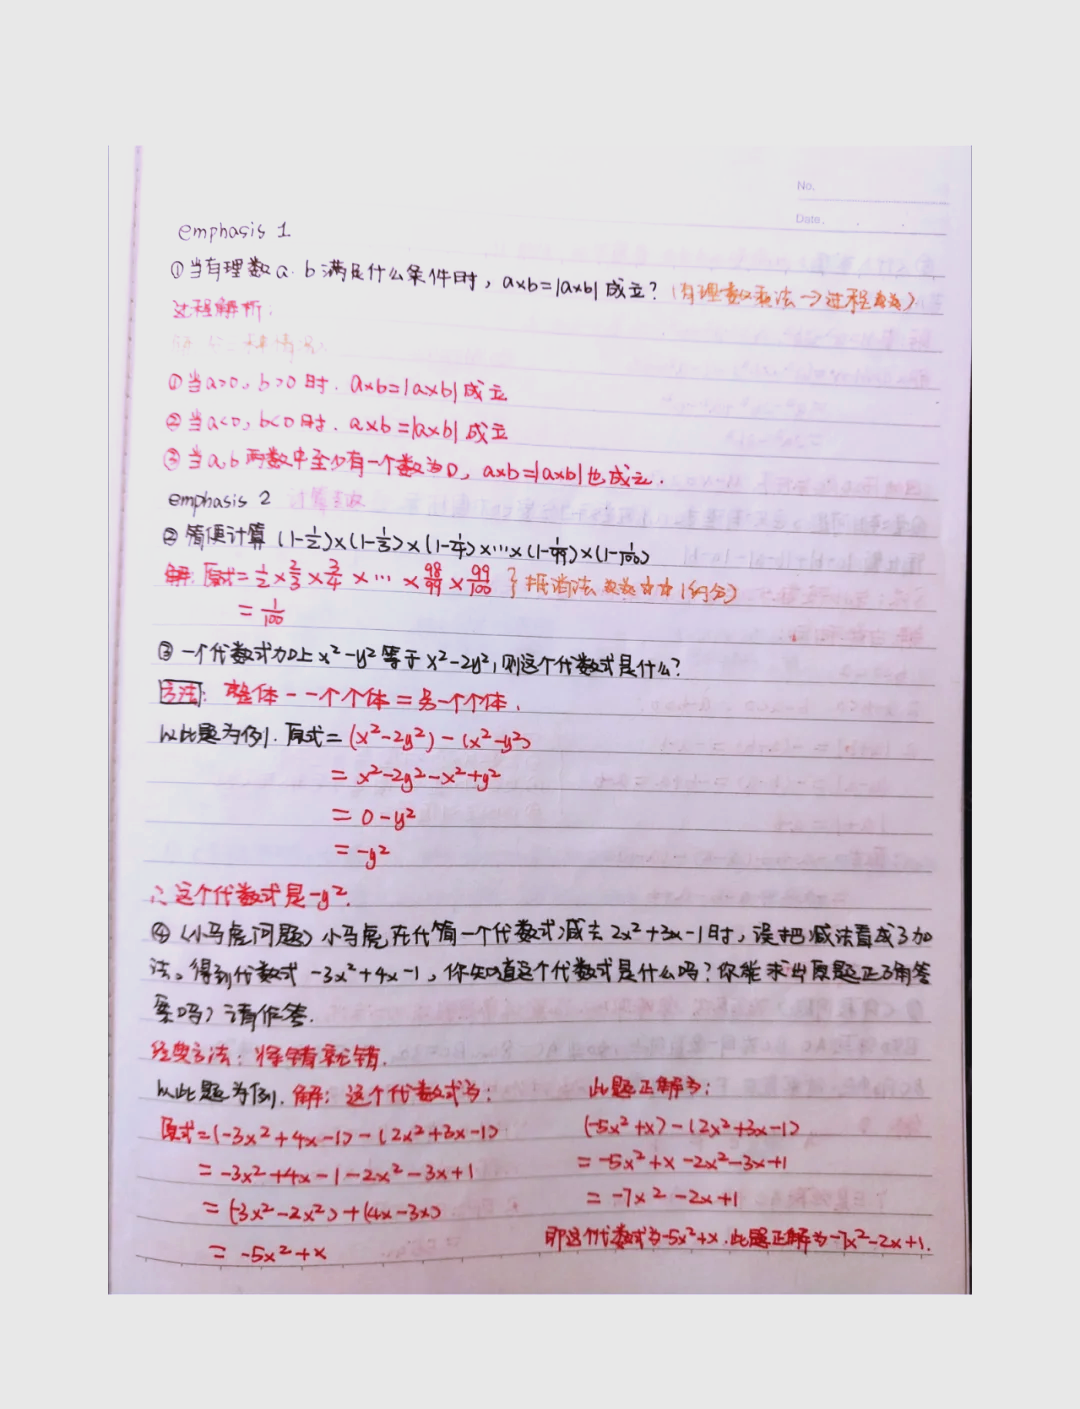 No.
Date.
emphasis 1
①当有理数a.b满足什么条件时，a×b=|a×b|成立？(有理数乘法→过程
过程解析:
①当a>0, b>0时. a×b=|a×b|成立
②当a<0, b<0时. a×b=|a×b|成立
③当a,b两数中至少有一个数为0, a×b=|a×b|也成立.
emphasis 2 计算
②简便计算 (1-1/2)×(1-1/3)×(1-1/4)×…×(1-1/99)×(1-1/100)
解: 原式=1/2×2/3×3/4×…×98/99×99/100 } 抵消法 ☆☆☆☆(约分)
=1/100
③一个代数式加上x²-y²等于x²-2y²,则这个代数式是什么?
方法: 整体-一个个体=另一个个体.
以此题为例. 原式=(x²-2y²)-(x²-y²)
=x²-2y²-x²+y²
=0-y²
=-y²
∴这个代数式是-y².
④(小马虎问题)小马虎在代简一个代数式减去2x²+3x-1时,误把减法看成了加
法。得到代数式-3x²+4x-1,你知道这个代数式是什么吗?你能求出原题正确答
案吗?请作答.
经典方法: 将错就错.
以此题为例. 解: 这个代数式为: 此题正解为:
原式=(-3x²+4x-1)-(2x²+3x-1) (-5x²+x)-(2x²+3x-1)
=-3x²+4x-1-2x²-3x+1 =-5x²+x-2x²-3x+1
=(-3x²-2x²)+(4x-3x) =-7x²-2x+1
=-5x²+x 即这个代数式为-5x²+x.此题正解为-7x²-2x+1.